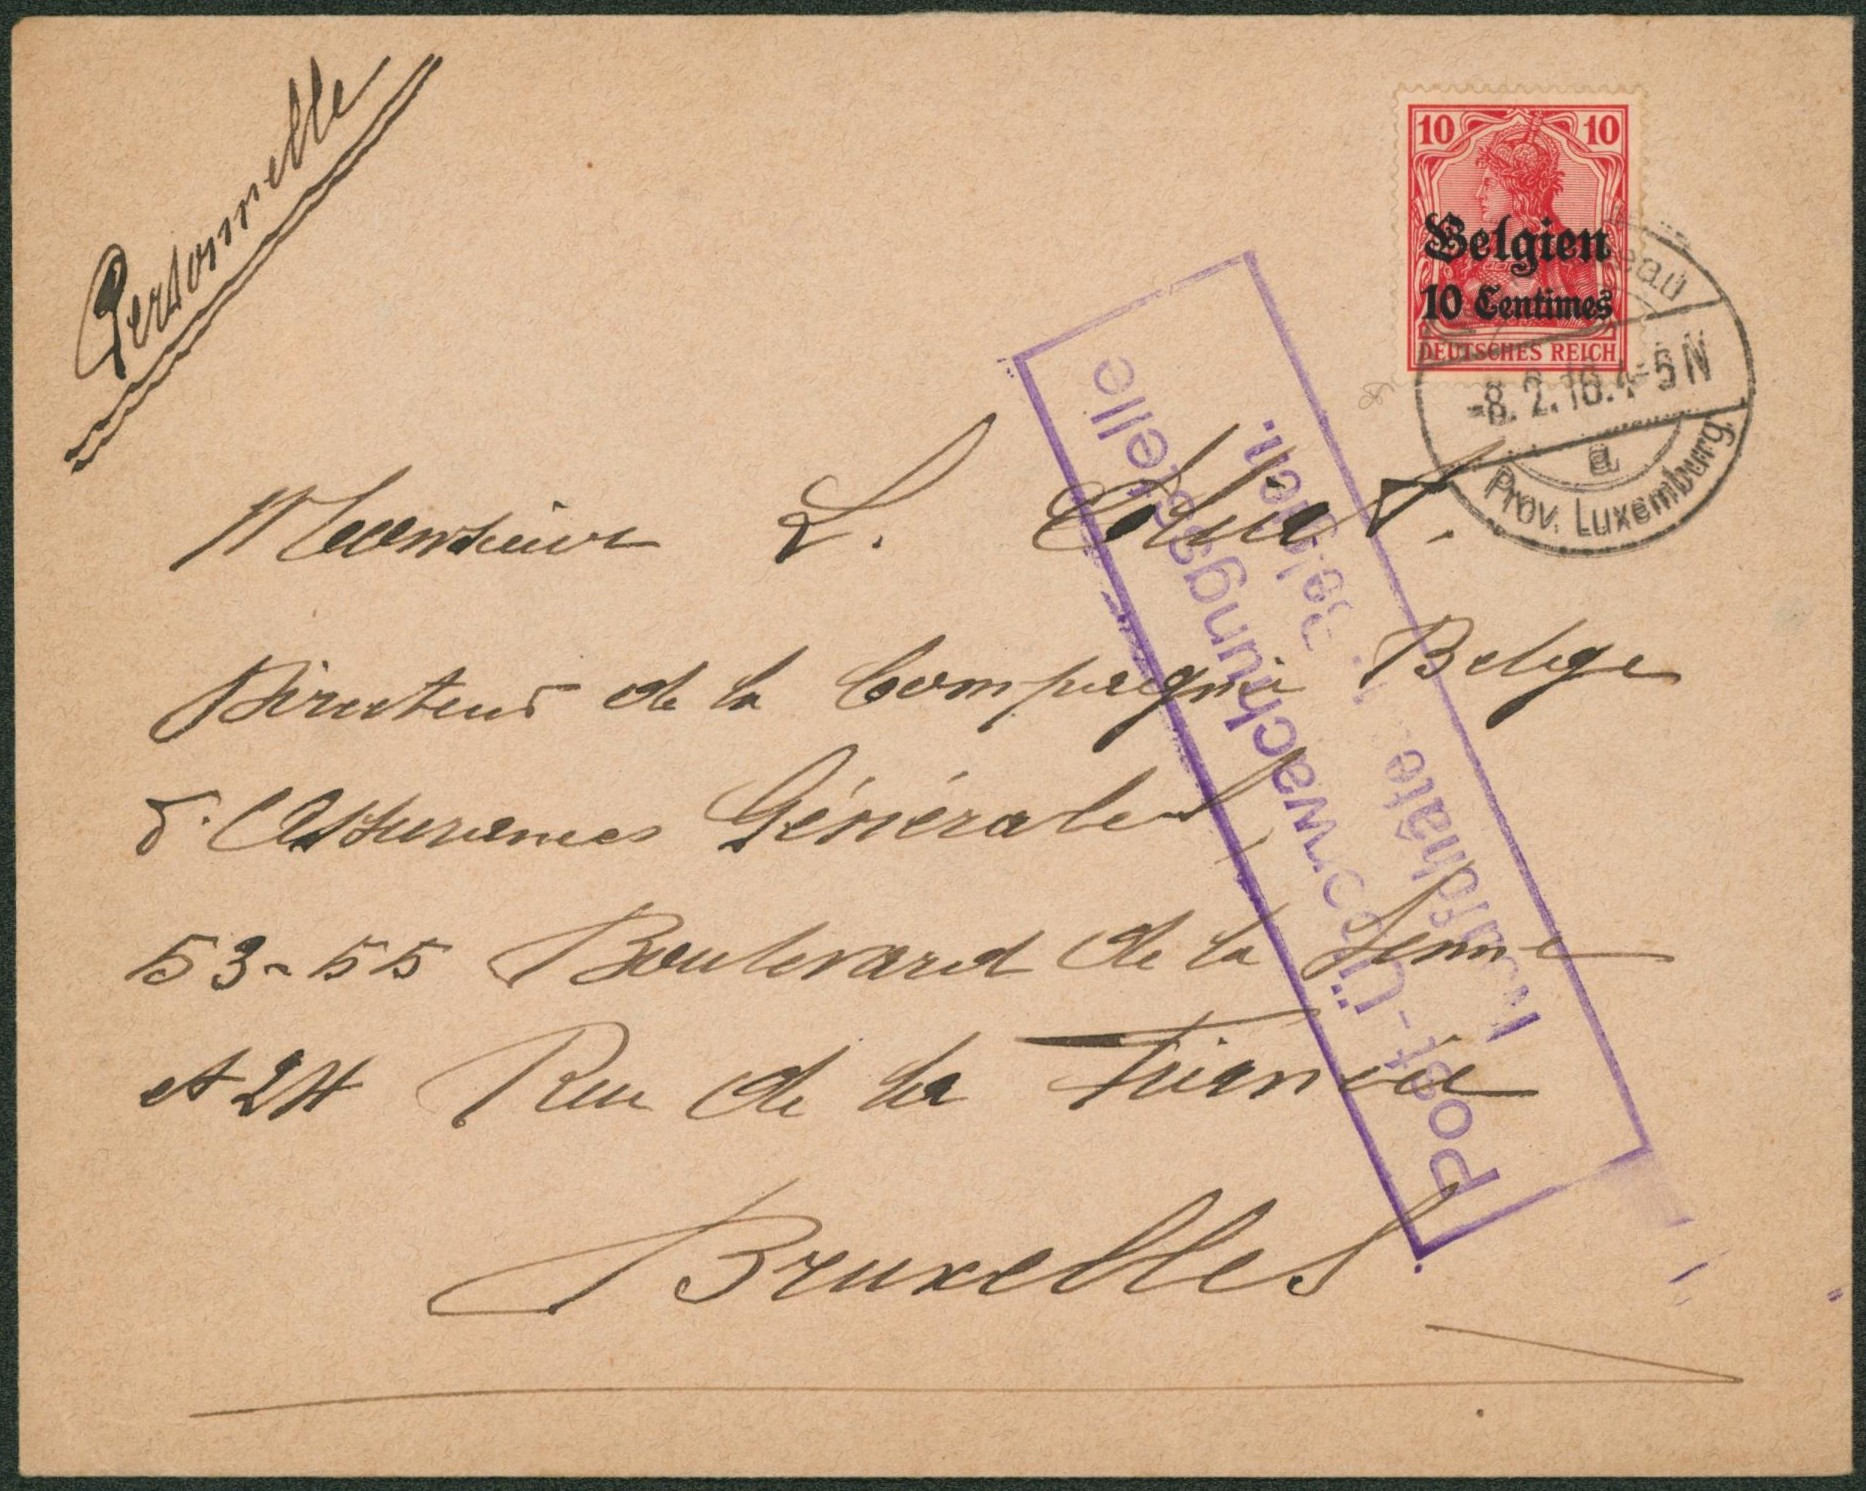 Personnelle
10 10
Belgien
10 Centimes
DEUTSCHES REICH
-8.2.16.4-5N
a
Prov. Luxemburg.
Monsieur L. Colust.
Directeur de la Compagnie Belge
d'Assurances Générales
53-55 Boulevard de la Senne
et 24 Rue de la Fiancée
Bruxelles
Post-Überwachungsstelle
Neufchâteau i. Belgien.